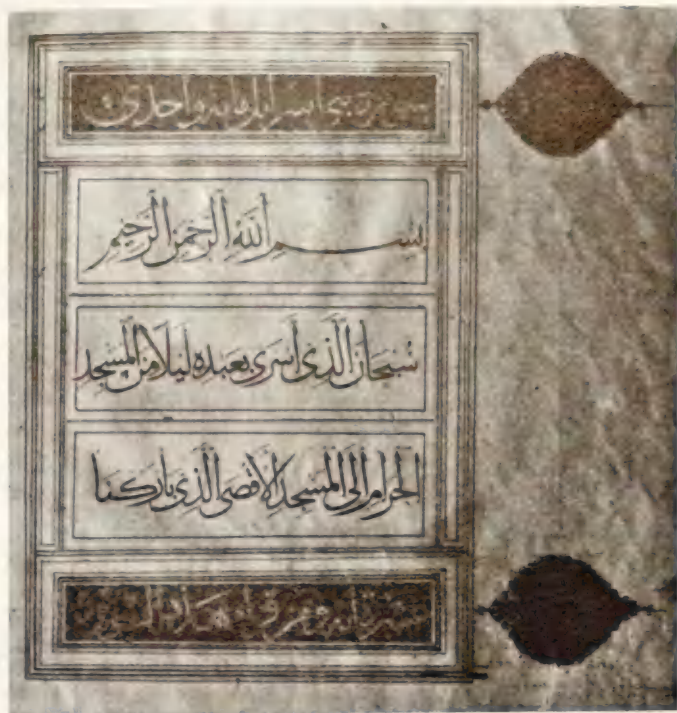 سورة بني اسرايل مائة واحدى
بِسْمِ اللَّهِ الرَّحْمَنِ الرَّحِيمِ
سُبْحَانَ الَّذِي أَسْرَى بِعَبْدِهِ لَيْلًا مِنَ الْمَسْجِدِ
الْحَرَامِ إِلَى الْمَسْجِدِ الْأَقْصَى الَّذِي بَارَكْنَا
عشرة